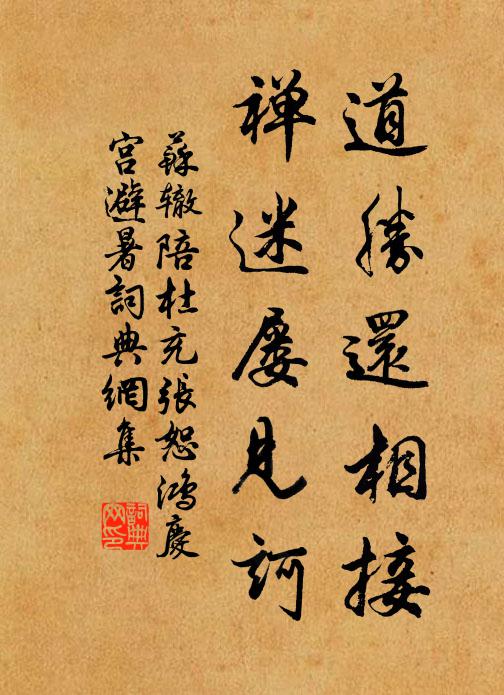 道勝還相接
禅迷屡見訶
蘇轍陪杜充張恕鴻慶
宫避暑詞典網集
詞典
网印